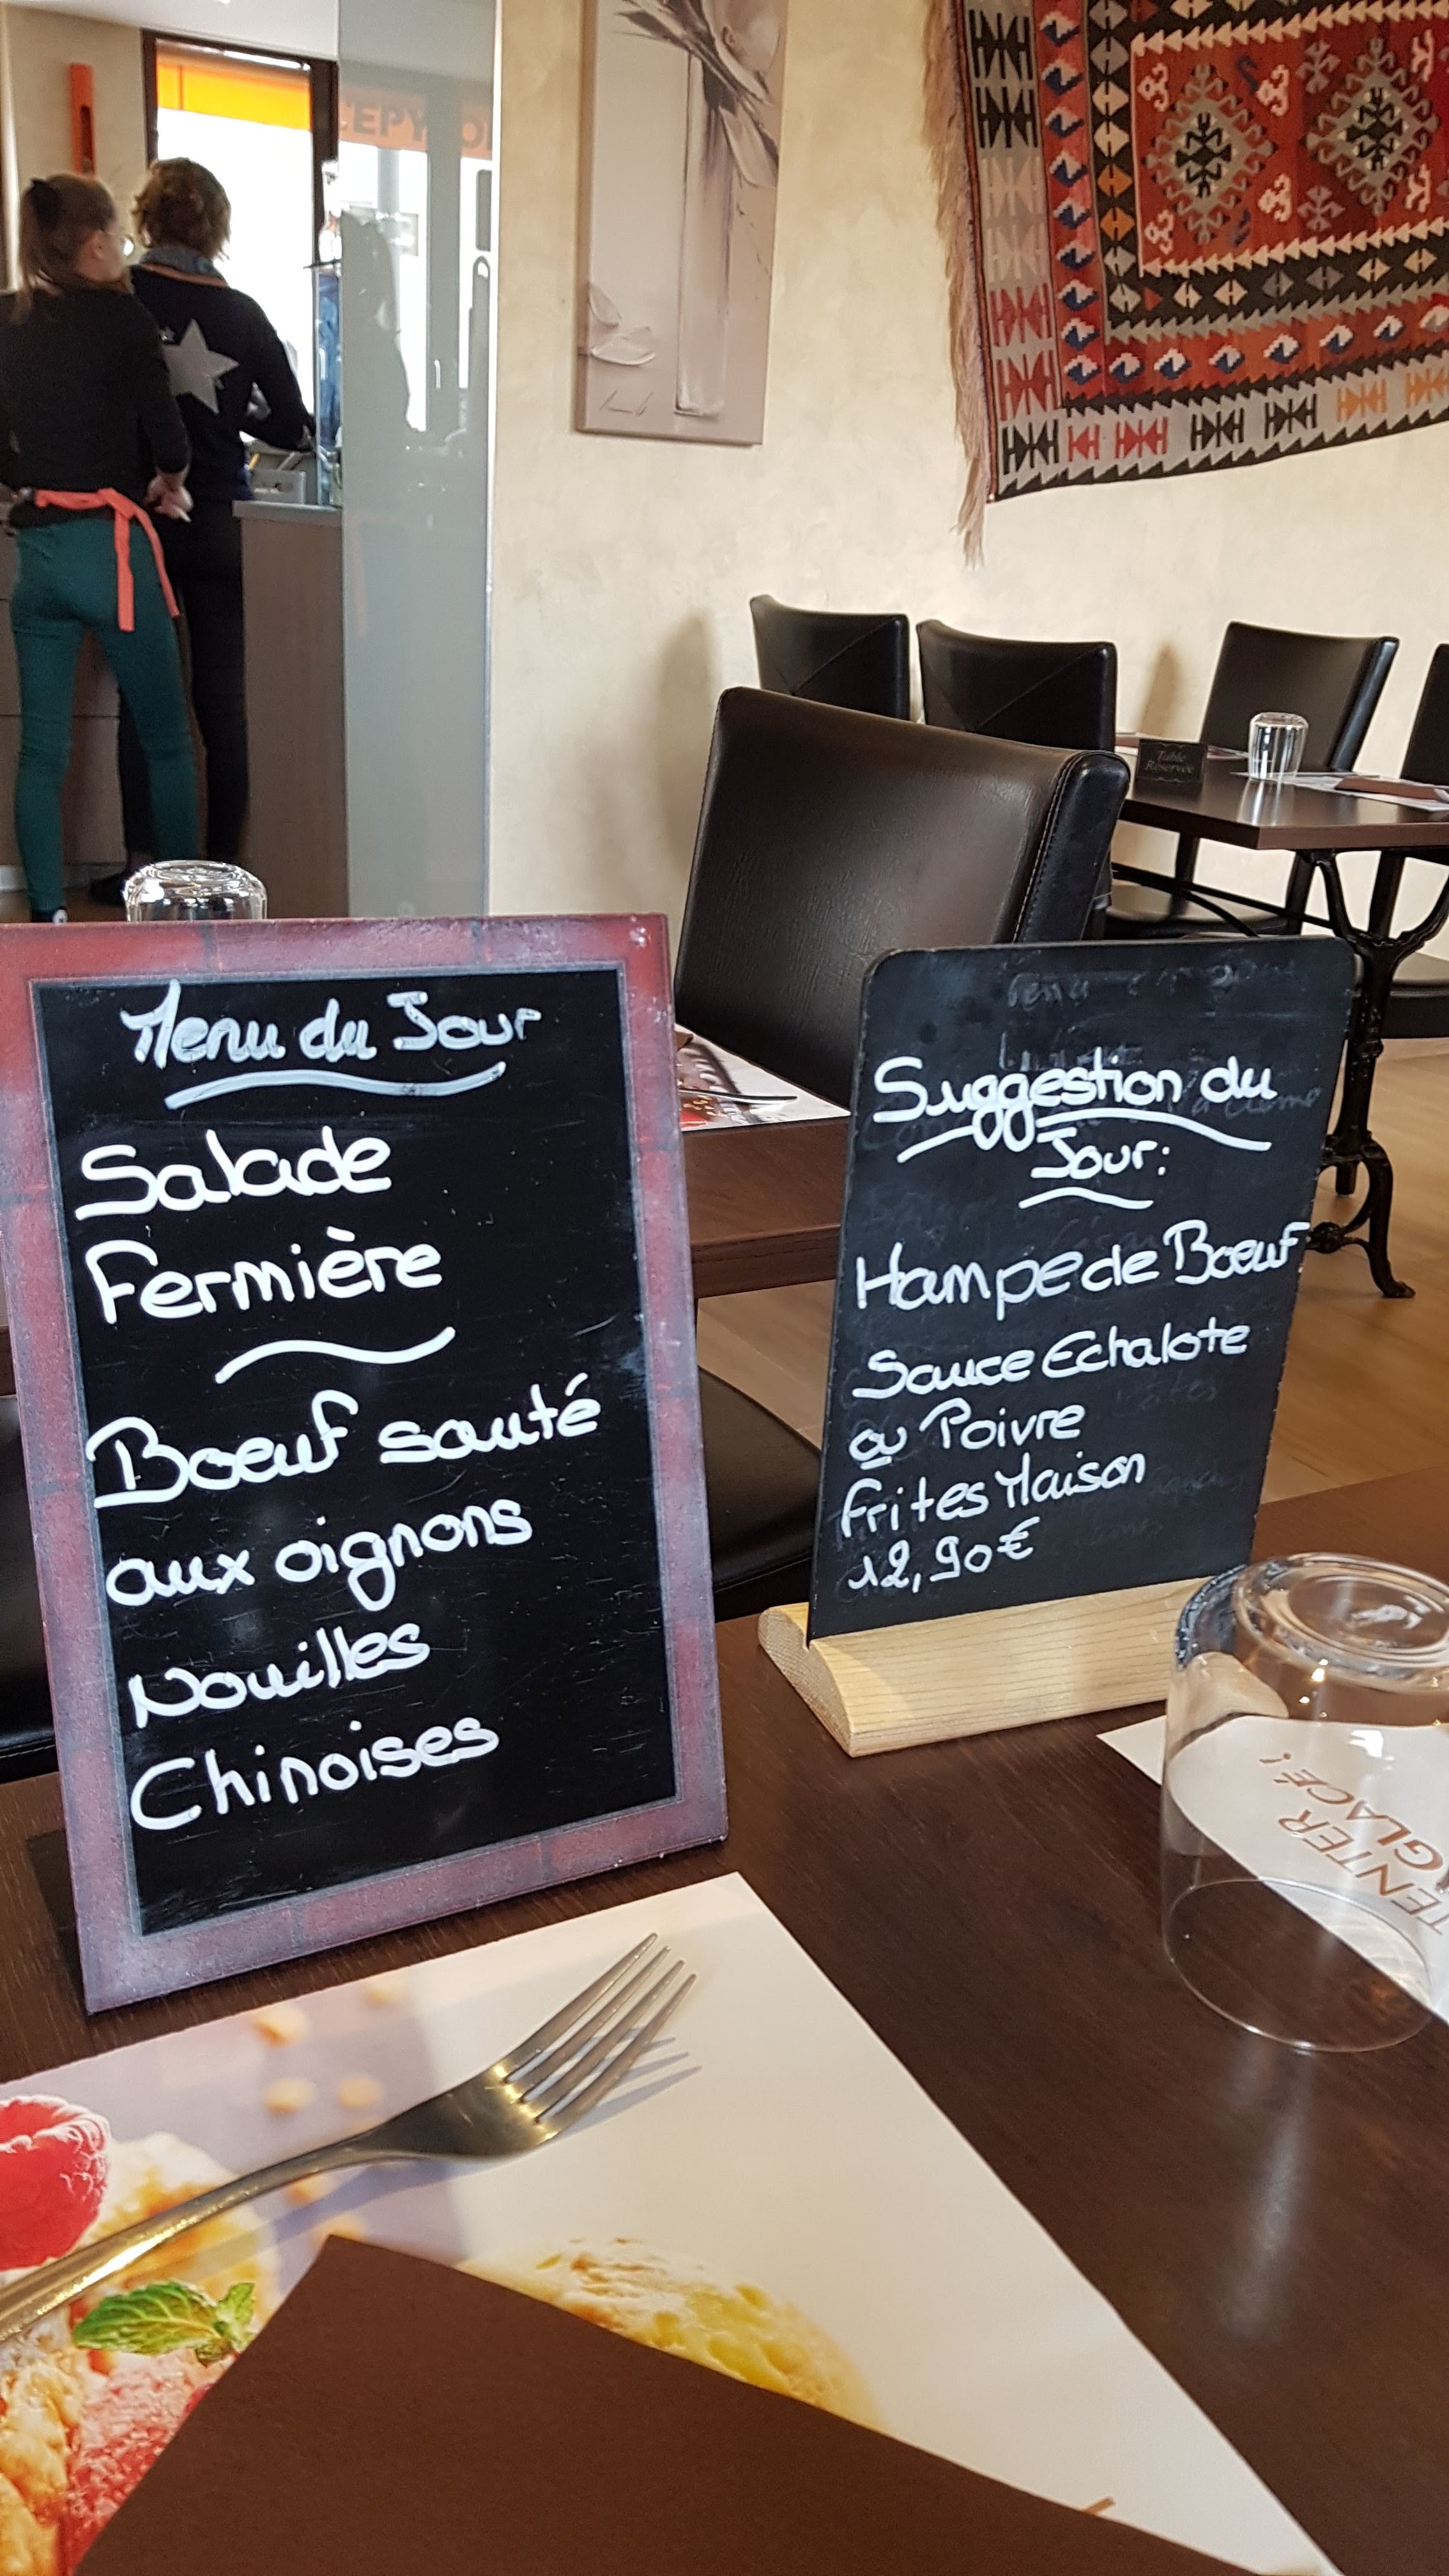 Menu du Jour
Salade
Fermière
Boeuf sauté
aux oignons
Nouilles
Chinoises
Suggestion du
Jour:
Hampe de Boeuf
Sauce Echalote
ou Poivre
Frites Maison
12,90€
Table
Réservée
GLACÉ!